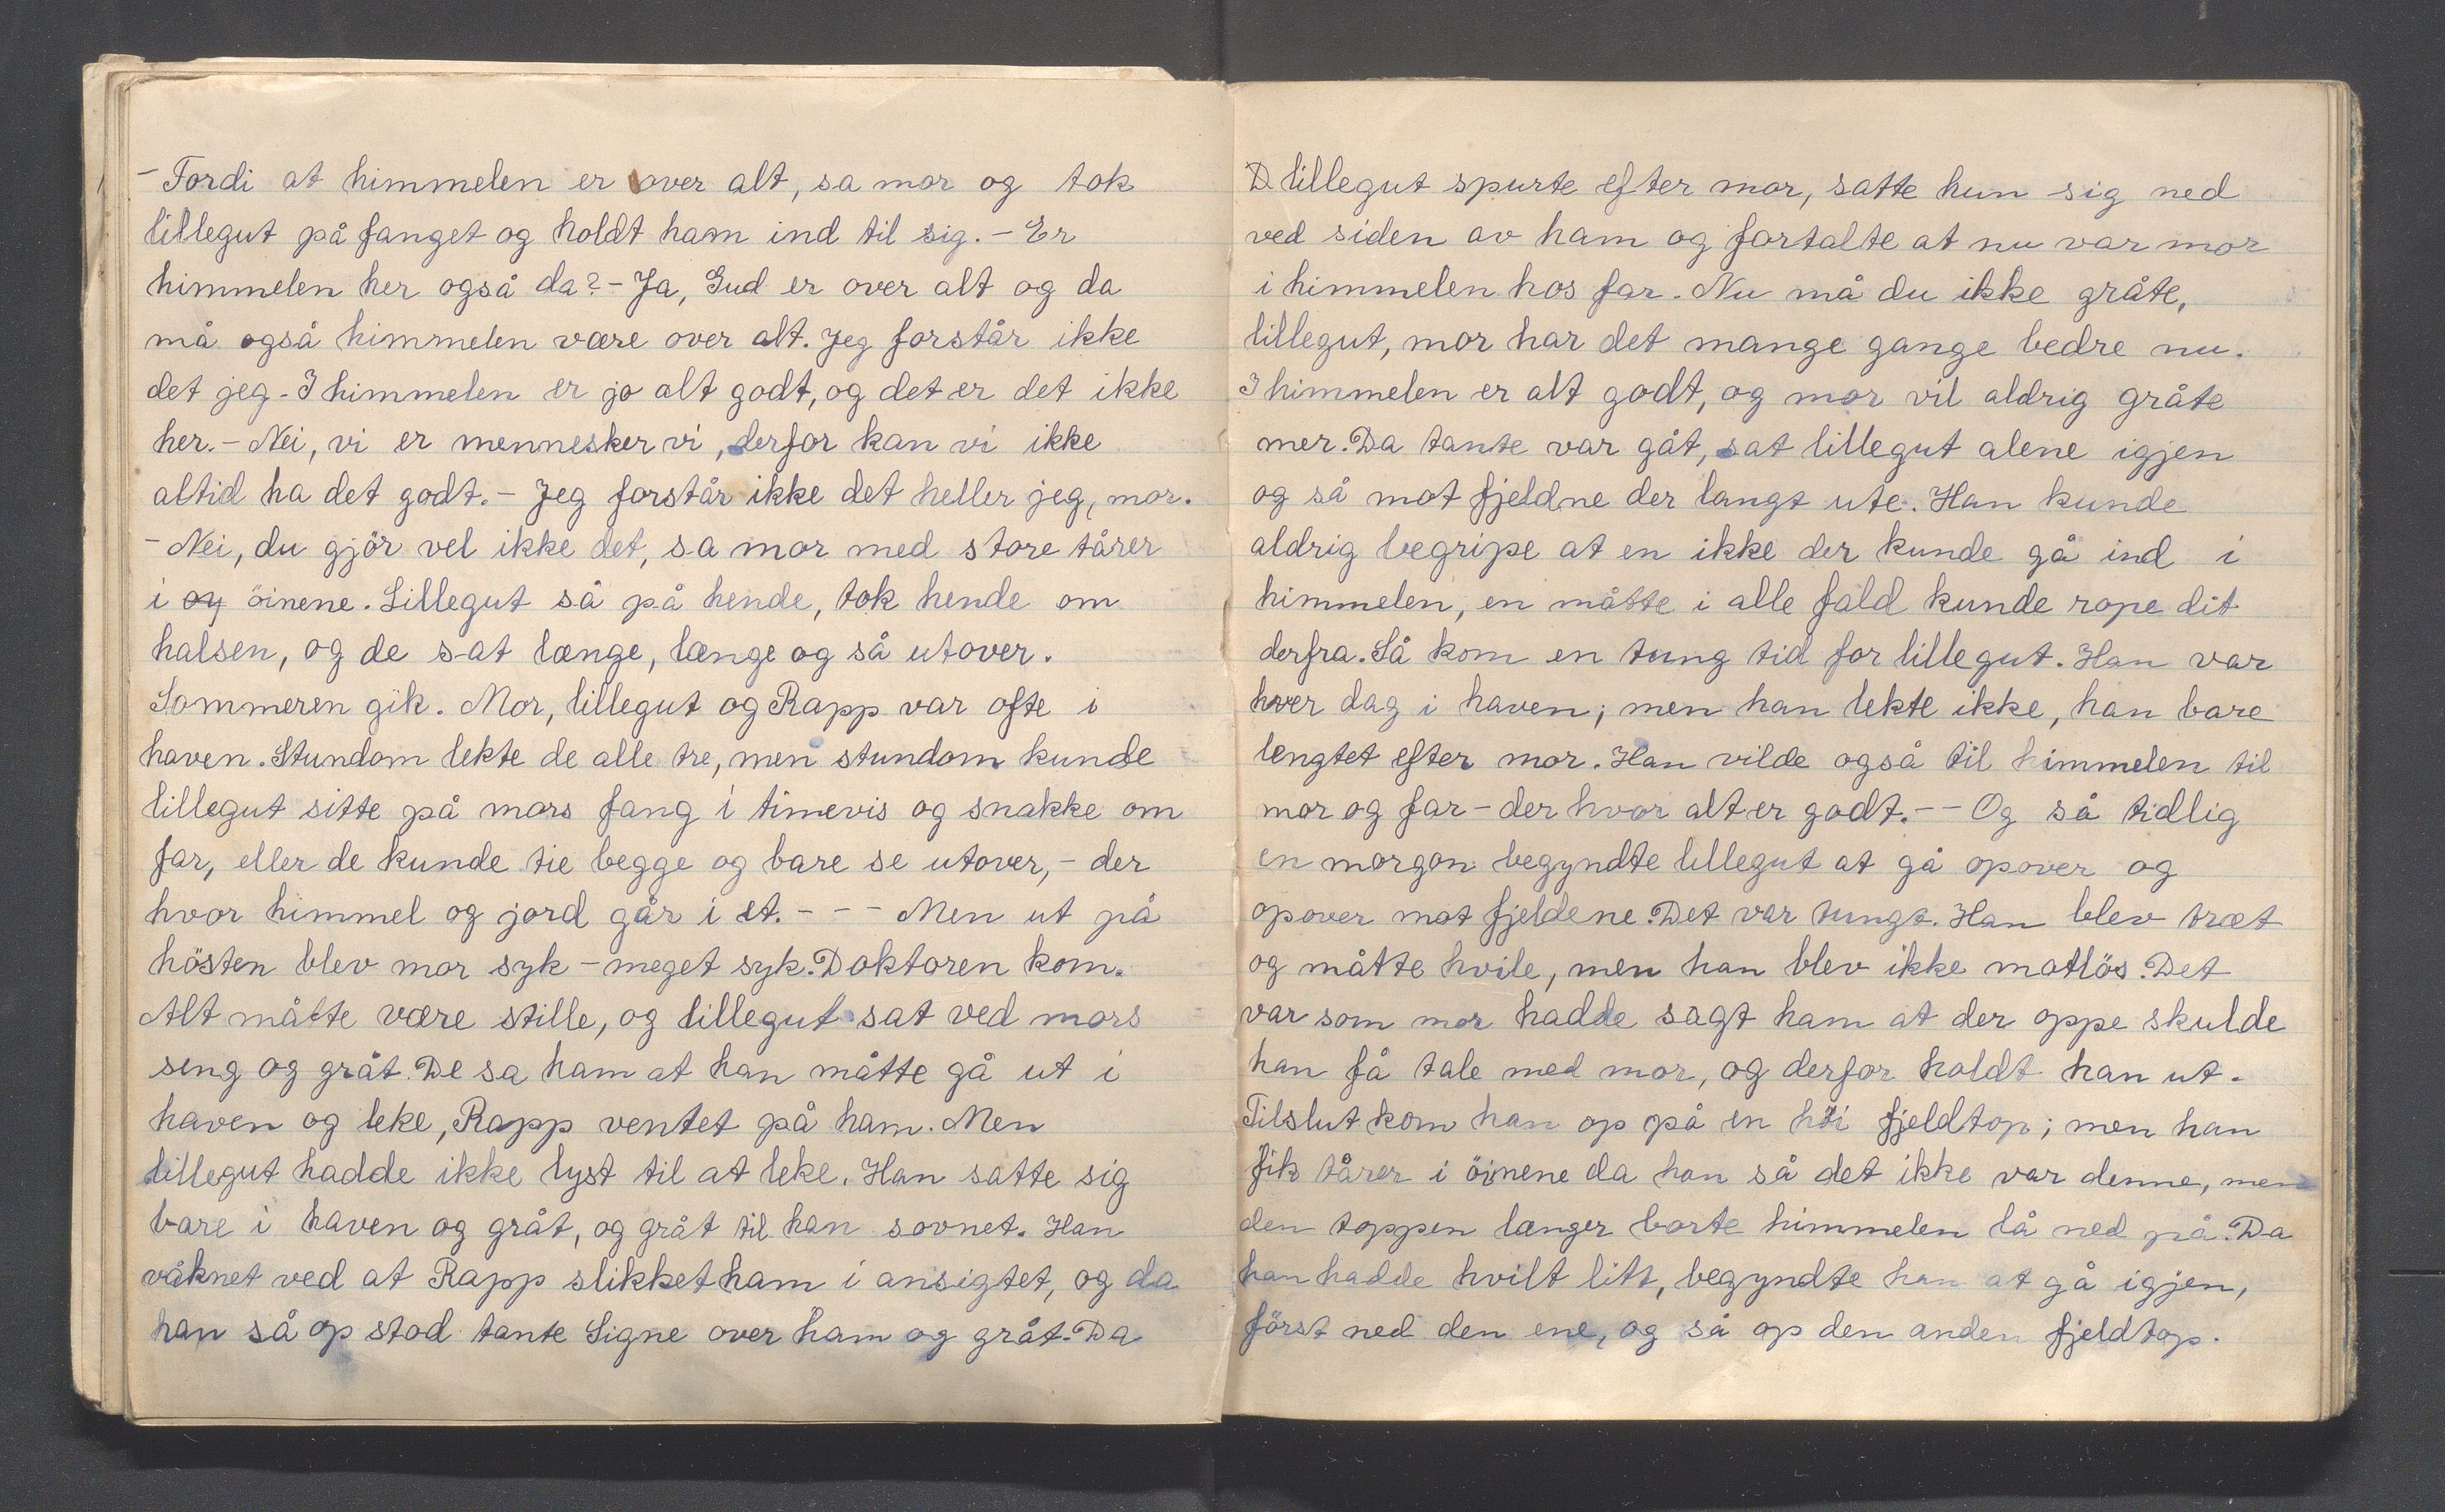 - Fordi at himmelen er over alt, sa mor og tok
lillegut på fanget og holdt ham ind til sig. - Er
himmelen her også da? - Ja, Gud er over alt og da
må også himmelen være over alt. Jeg forstår ikke
det jeg - I himmelen er jo alt godt, og det er det ikke
her. - Nei, vi er mennesker vi, derfor kan vi ikke
altid ha det godt. - Jeg forstår ikke det heller jeg, mor.
- Nei, du gjör vel ikke det, sa mor med store tårer
i oy öinene. Lillegut så på hende, tok hende om
halsen, og de sat længe, længe og så utover.
Sommeren gik. Mor, lillegut og Rapp var ofte i
haven. Stundom lekte de alle tre, men stundom kunde
lillegut sitte på mors fang i timevis og snakke om
far, eller de kunde tie begge og bare se utover, - der
hvor himmel og jord går i et. - - - Men ut på
hösten blev mor syk - meget syk. Doktoren kom.
Alt måtte være stille, og lillegut sat ved mors
seng og gråt. De sa ham at han måtte gå ut i
haven og leke, Rapp ventet på ham. Men
lillegut hadde ikke lyst til at leke. Han satte sig
bare i haven og gråt, og gråt til han sovnet. Han
våknet ved at Rapp slikket ham i ansigtet, og da
han så op stod tante Signe over ham og gråt. Da
D lillegut spurte efter mor, satte hun sig ned
ved siden av ham og fortalte at nu var mor
i himmelen hos far. Nu må du ikke gråte,
lillegut, mor har det mange gange bedre nu.
I himmelen er alt godt, og mor vil aldrig gråte
mer. Da tante var gåt, sat lillegut alene igjen
og så mot fjeldne der langt ute. Han kunde
aldrig begripe at en ikke der kunde gå ind i
himmelen, en måtte i alle fald kunde rope dit
derfra. Så kom en tung tid for lillegut. Han var
hver dag i haven; men han lekte ikke, han bare
lengtet efter mor. Han vilde også til himmelen til
mor og far - der hvor alt er godt. - - Og så tidlig
en morgon begyndte lillegut at gå opover og
opover mot fjeldene. Det var tungt. Han blev træt
og måtte hvile, men han blev ikke motlös. Det
var som mor hadde sagt ham at der oppe skulde
han få tale med mor, og derfor holdt han ut.
Tilslut kom han op på en höi fjeldtop; men han
fik tårer i öinene da han så det ikke var denne, men
den toppen længer borte himmelen lå ned på. Da
han hadde hvilt litt, begyndte han at gå igjen,
först ned den ene, og så op den anden fjeldtop.